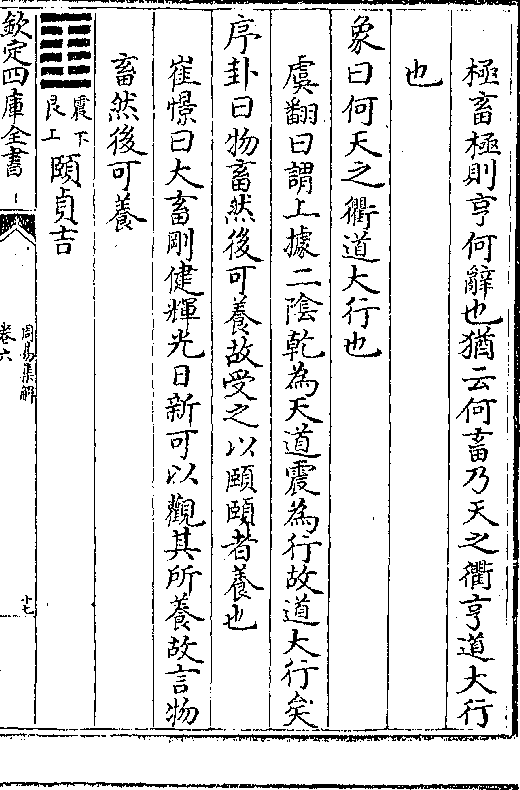 極畜極則亨何辭也猶云何畜乃天之衢亨道大行
也
象曰何天之衢道大行也
虞翻曰謂上據二陰乾為天道震為行故道大行矣
序卦曰物畜然後可養故受之以頤頤者養也
崔憬曰大畜剛健輝光日新可以觀其所養故言物
畜然後可養
震下
艮上
頤貞吉
欽定四庫全書
周易集解
卷六
十七